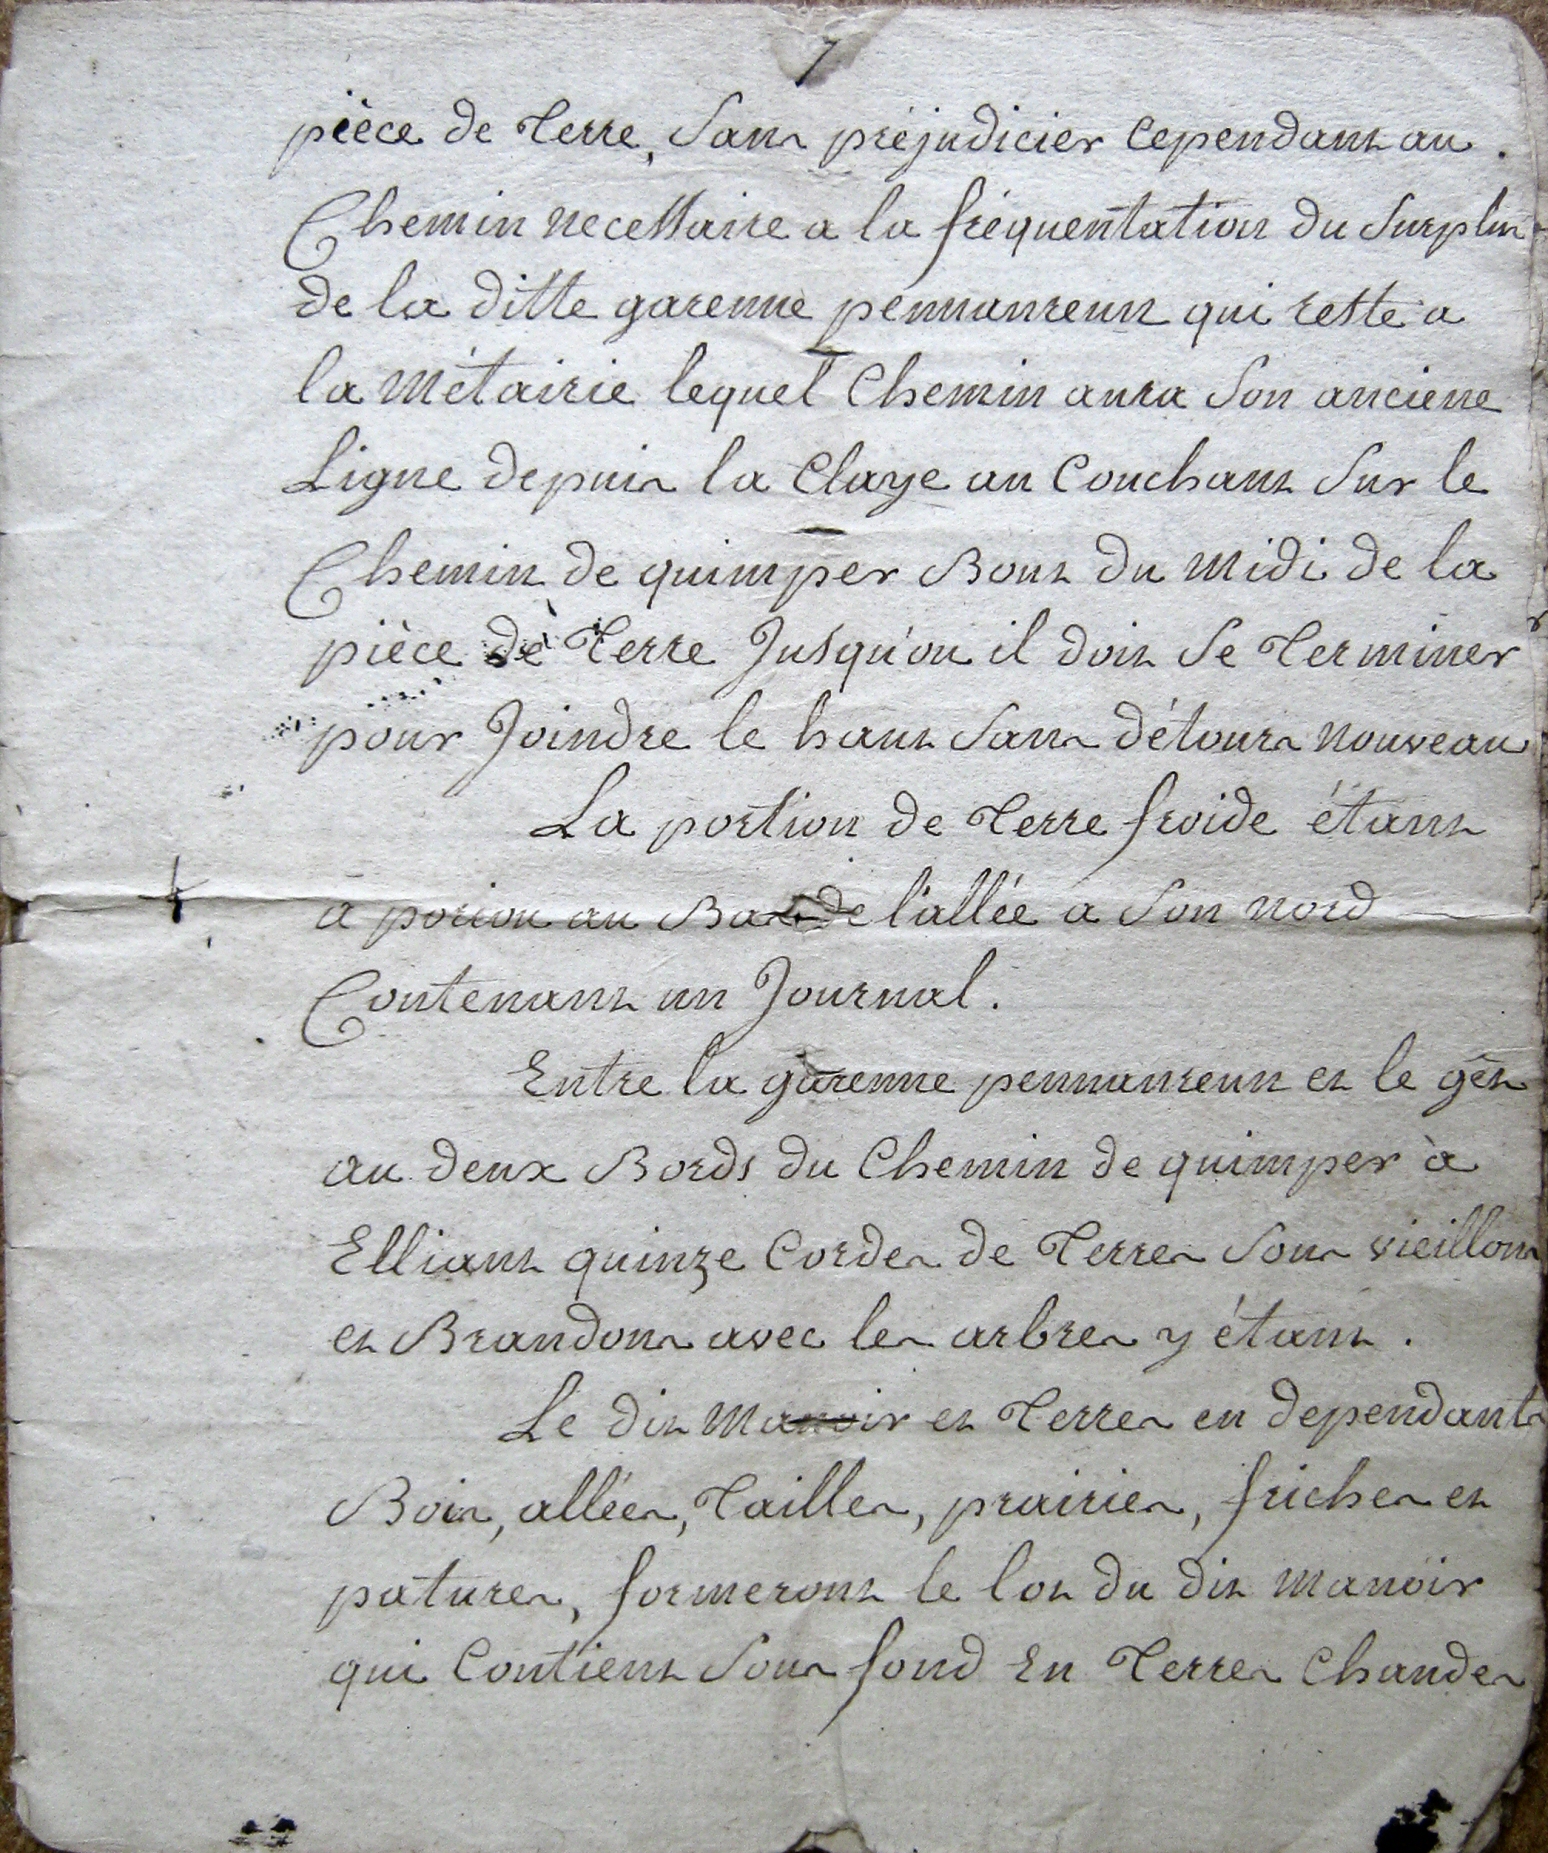 7
pièce de Terre, Sans préjudicier Cependant au.
Chemin necessaire a la fréquentation du Surplus
de la ditte garenne pennanreun qui reste a
la Métairie lequel Chemin aura Son anciene
Ligne depuis la Claye au Couchant Sur le
Chemin de quimper Bout du Midi de la
pièce de Terre Jusqu'ou il doit Se Terminer
pour Joindre le haut Sans détours nouveau
La portion de Terre froide étant
a au Bas de l'allée a Son nord
Contenant un Journal.
Entre la garenne pennanreun et le
au deux Bords du Chemin de quimper à
Elliant quinze Cordes de Terres Sous vieillons
et Brandons avec les arbres y étant.
Le dit Manoir et Terres en dependants
Bois, allées, Tailles, prairies, friches et
patures, formeront le lot du dit manoir
qui Contient Sous fond En Terres Chaudes